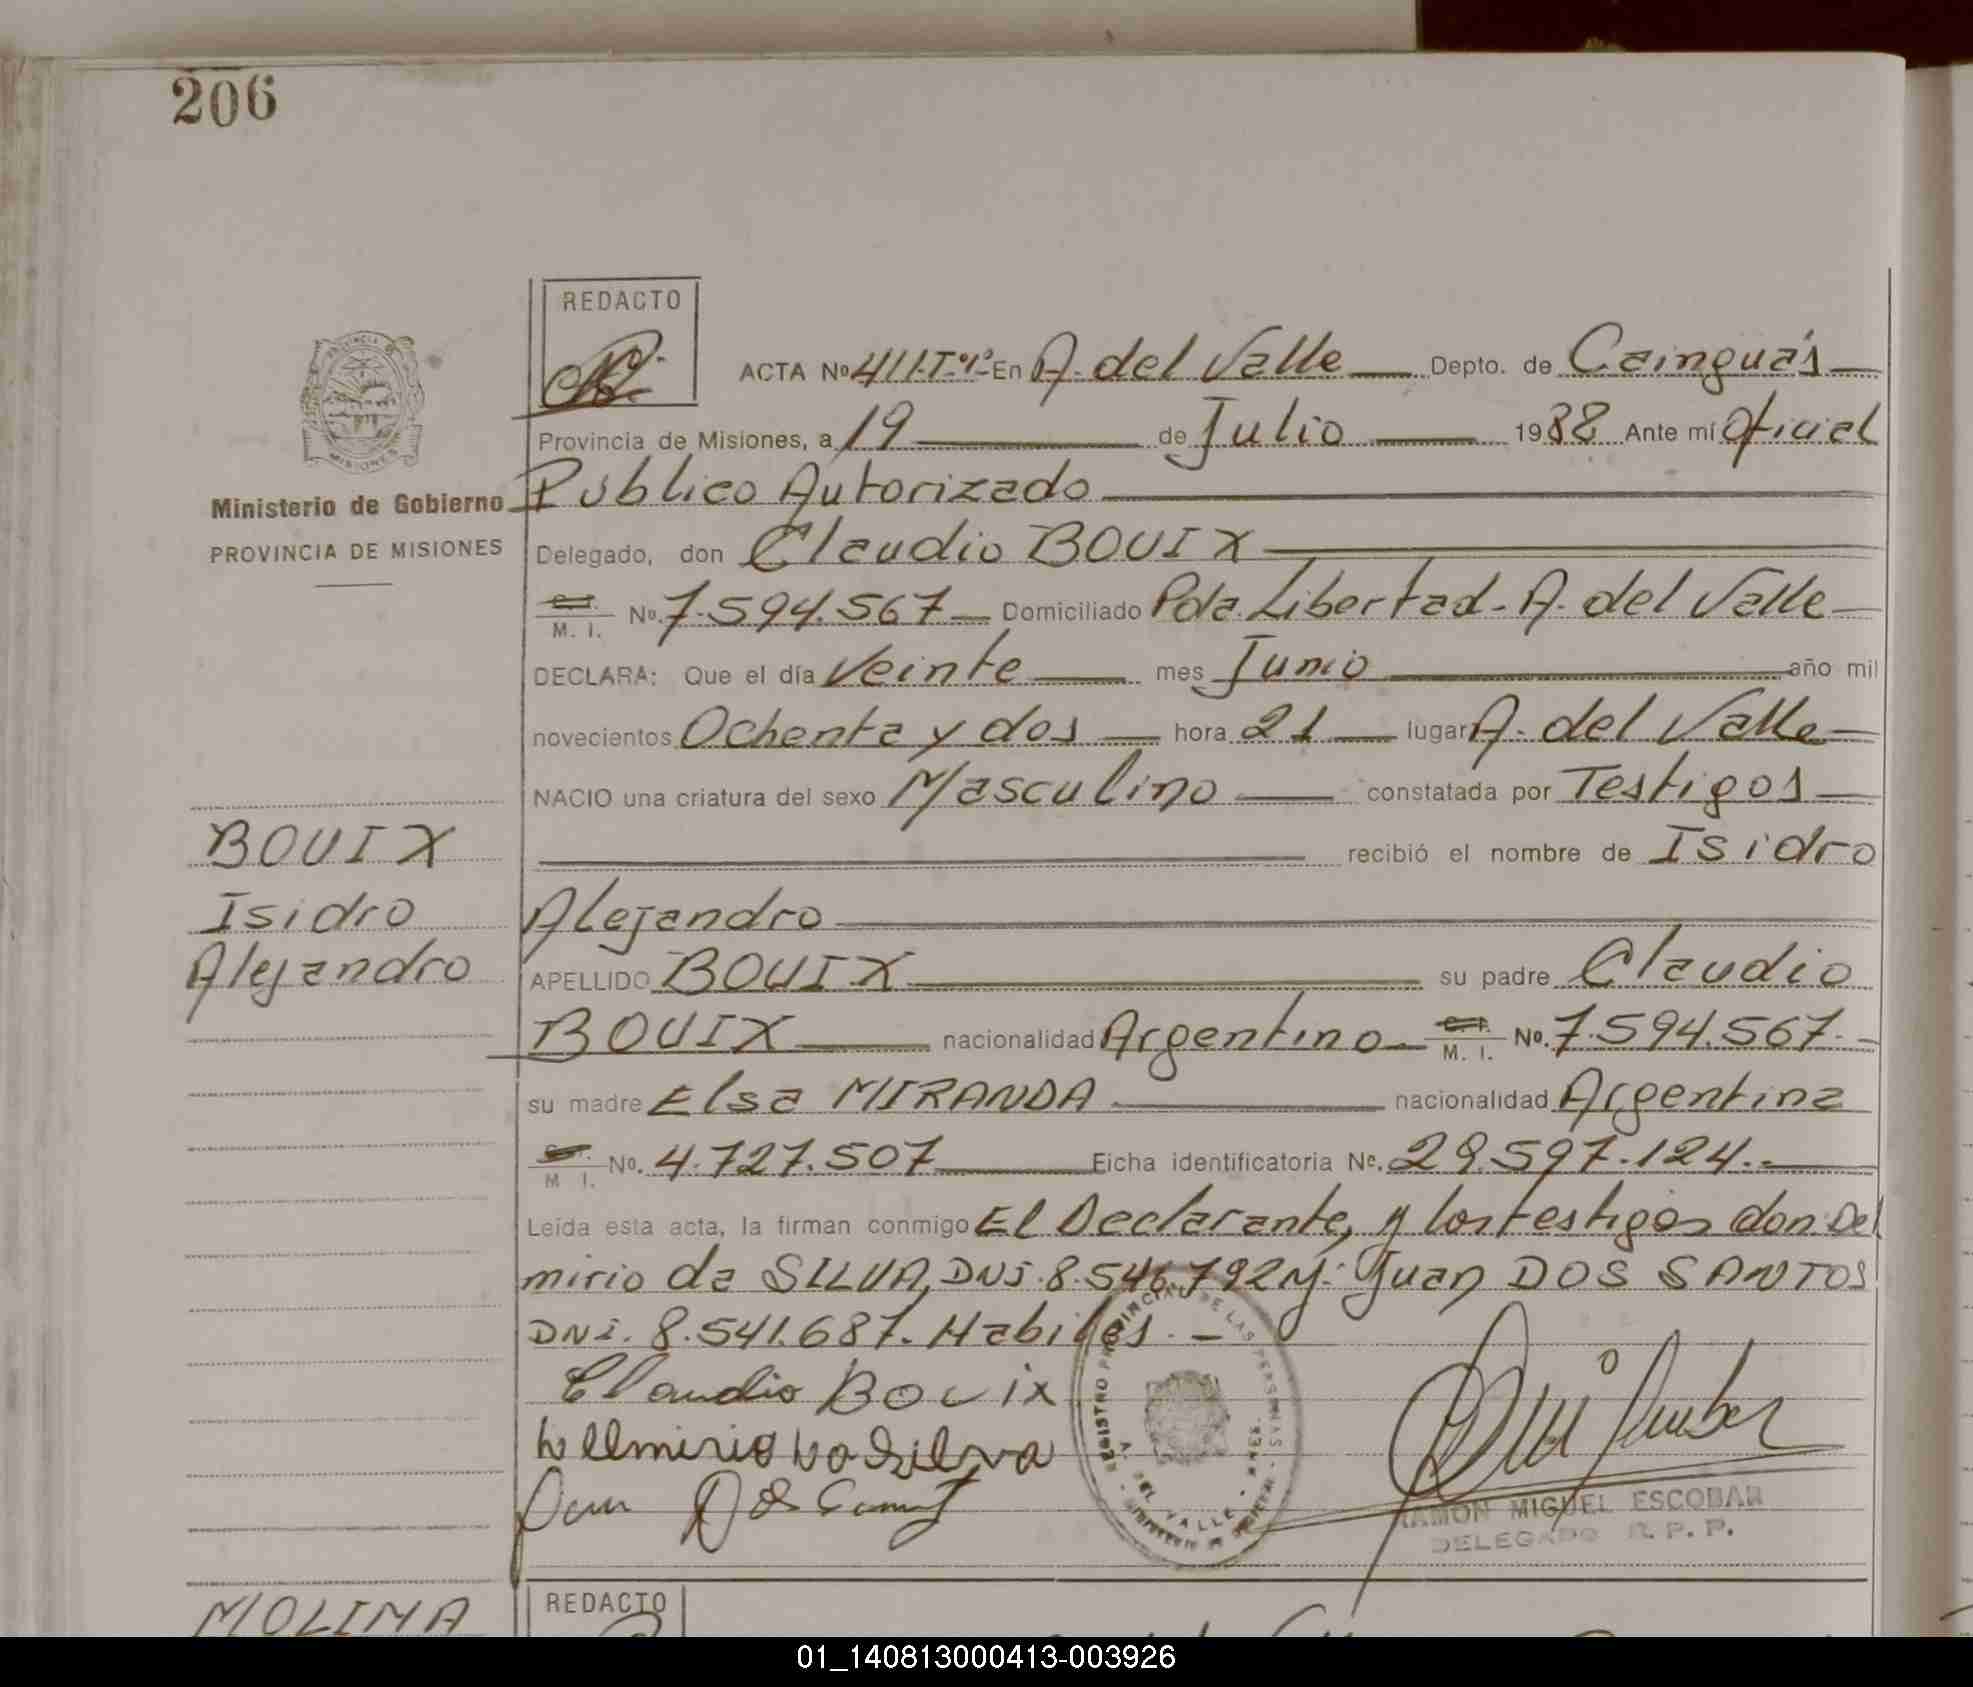 206
REDACTO
ACTA Nº 411-Tº1º- En A. del Valle Depto. de Cainguás
Provincia de Misiones, a 19 de Julio 1988 Ante mí Oficial
Ministerio de Gobierno
Público Autorizado
PROVINCIA DE MISIONES
Delegado, don Claudio BOUIX
M. I. Nº. 7.594.567 Domiciliado Pda. Libertad - A. del Valle
DECLARA: Que el día Veinte mes Junio año mil
novecientos Ochenta y dos hora 21 lugar A. del Valle
NACIO una criatura del sexo Masculino constatada por Testigos
BOUIX
recibió el nombre de Isidro
Isidro
Alejandro
Alejandro
APELLIDO BOUIX su padre Claudio
BOUIX nacionalidad Argentino M. I. Nº. 7.594.567.
su madre Elsa MIRANDA nacionalidad Argentina
M I. Nº. 4.727.507 Ficha identificatoria Nº. 29.597.124.-
Leída esta acta, la firman conmigo El Declarante, y los testigos don: Del
mirio da SILVA, DNI. 8.546.792 y: Juan DOS SANTOS
DNI. 8.541.687. Habiles. -
Claudio BOUIX
REGISTRO PROVINCIAL DE LAS PERSONAS
A. DEL VALLE - MNES.
RAMON MIGUEL ESCOBAR
DELEGADO R. P. P.
MOLINA
REDACTO
01_140813000413-003926